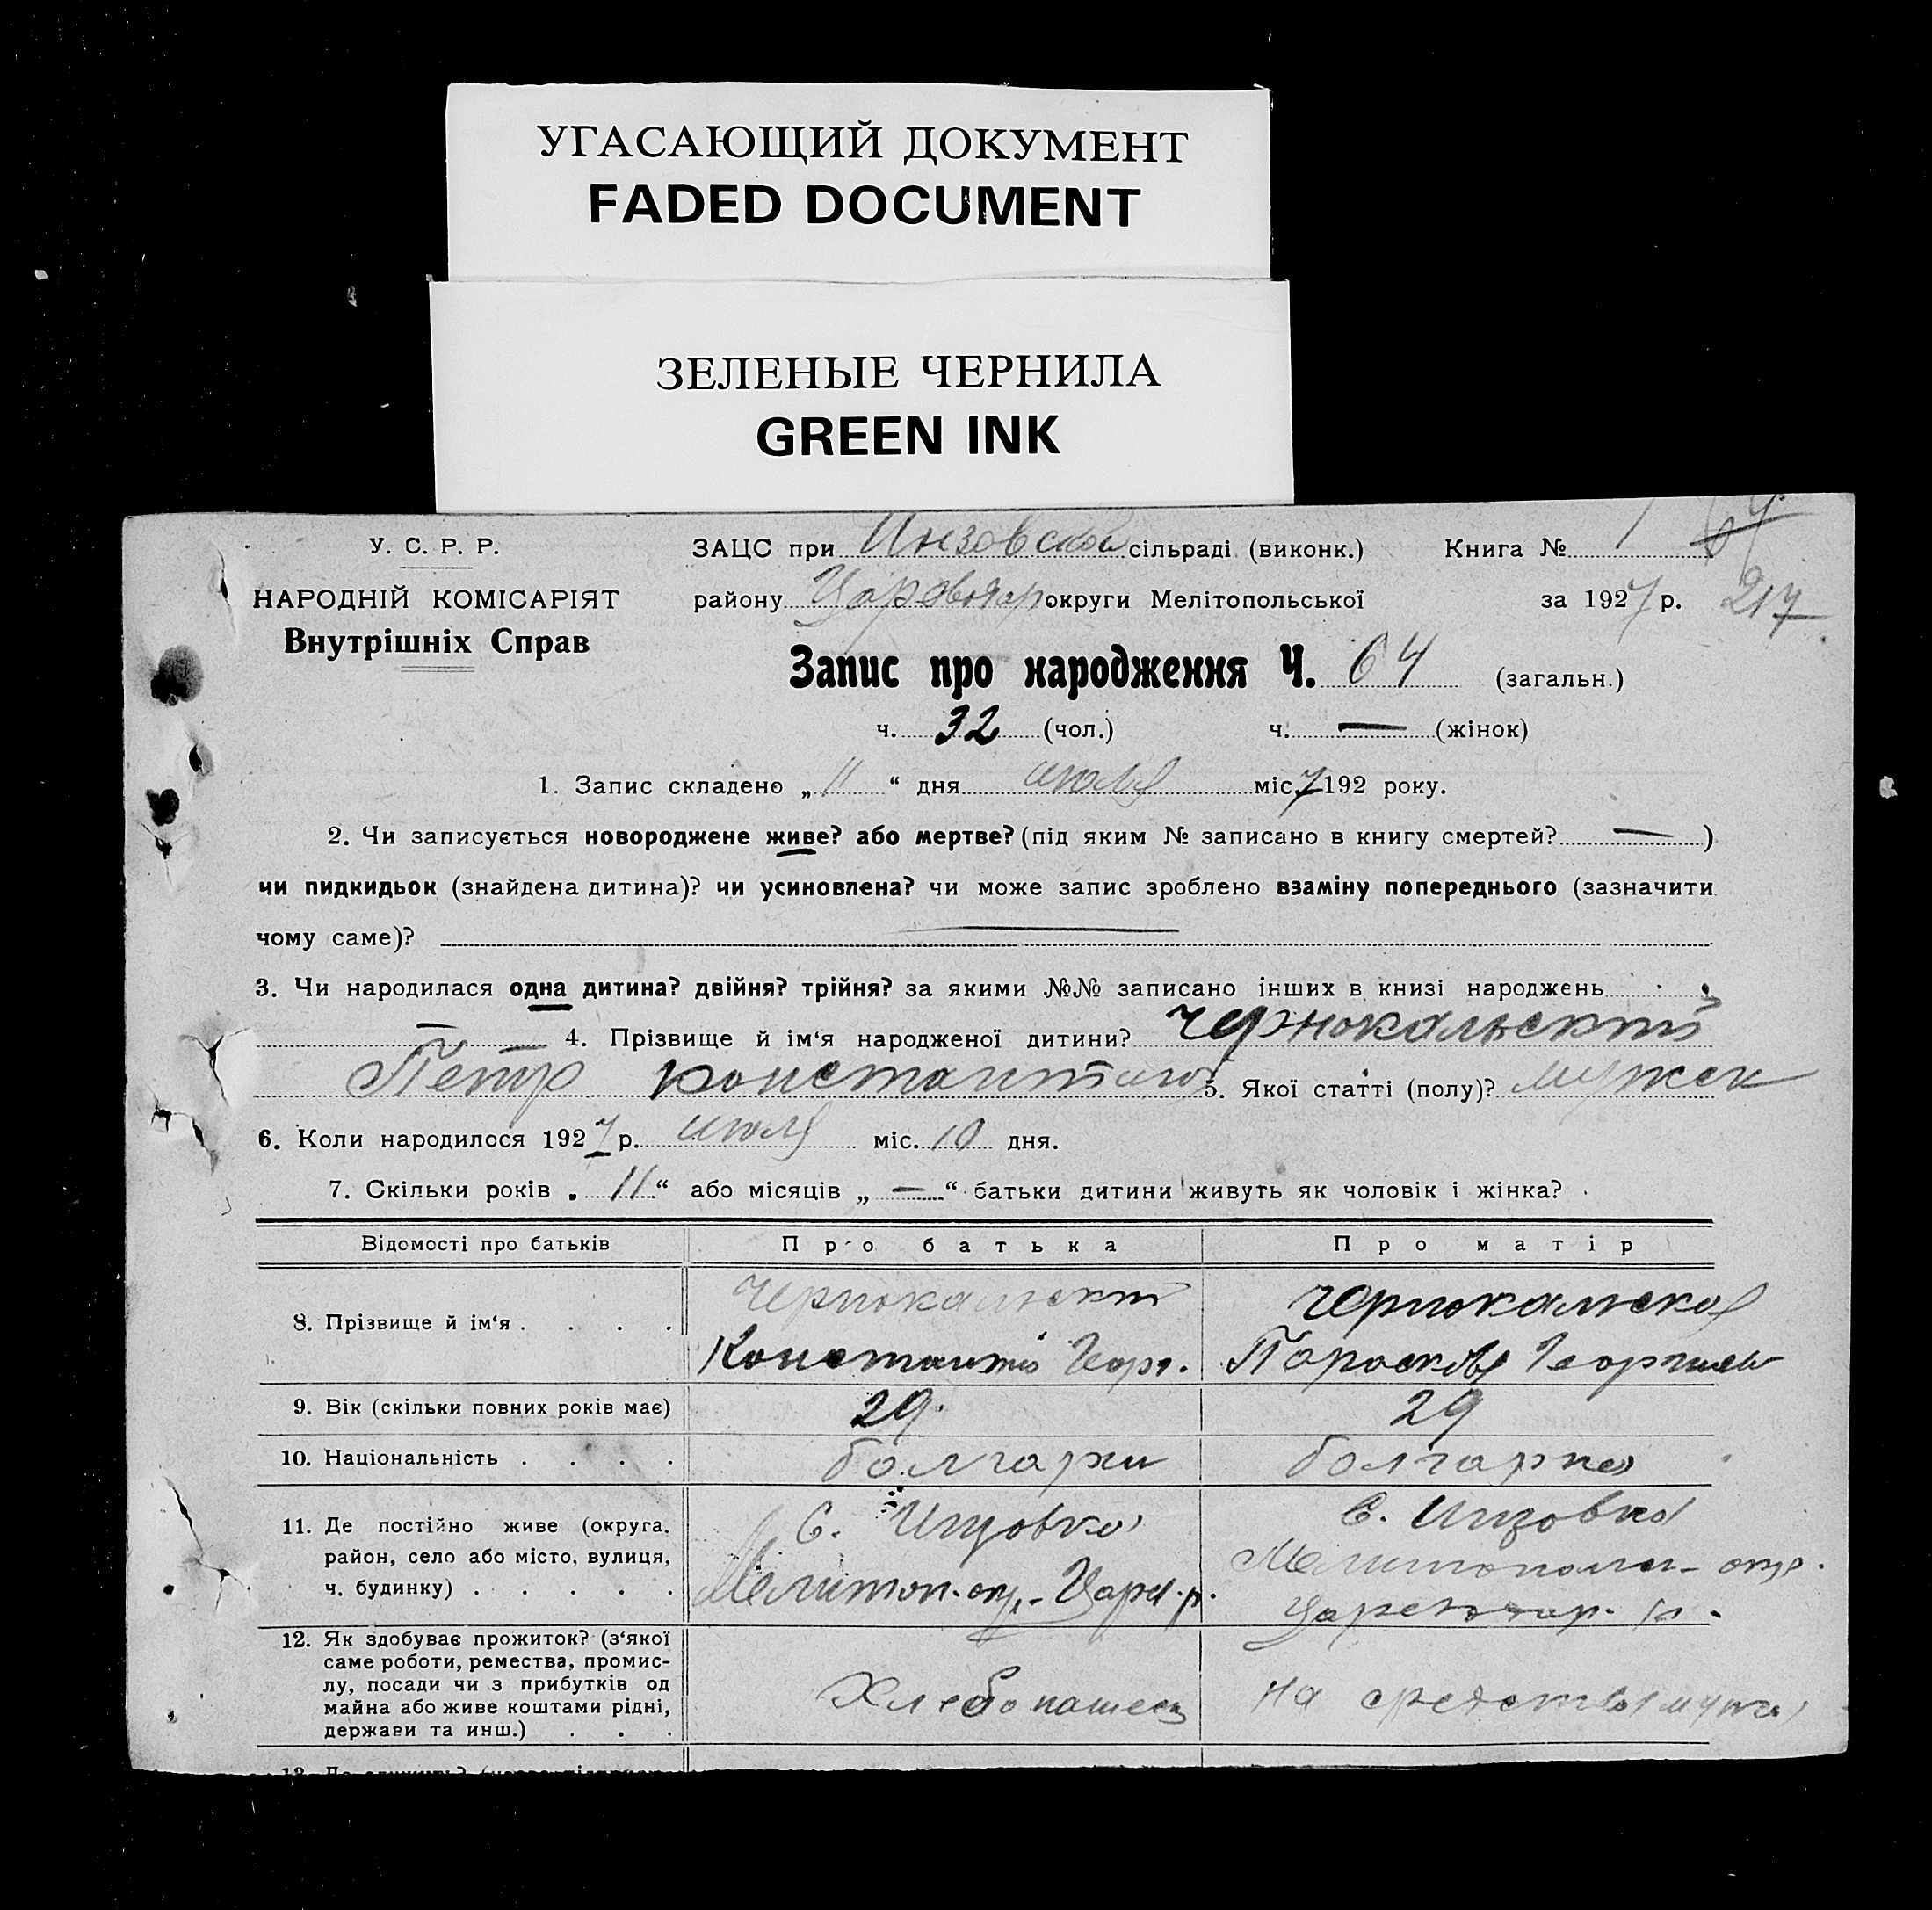 УГАСАЮЩИЙ ДОКУМЕНТ
FADED DOCUMENT
ЗЕЛЕНЫЕ ЧЕРНИЛА
GREEN INK
У. С. Р. Р.
НАРОДНІЙ КОМІСАРІЯТ
Внутрішніх Справ
ЗАЦС при Инзовской сільраді (виконк.) Книга № 1 64
району округи Мелітопольської за 1927 р. 217
Запис про народження Ч. 64 (загальн.)
ч. 32 (чол.) ч. — (жінок)
1. Запис складено „ 11 “ дня июля міс. 7 192 року.
2. Чи записується новороджене живе? або мертве? (під яким № записано в книгу смертей? — )
чи пидкидьок (знайдена дитина)? чи усиновлена? чи може запис зроблено взаміну попереднього (зазначити
чому саме)? —
3. Чи народилася одна дитина? двійня? трійня? за якими №№ записано інших в книзі народжень
— 4. Прізвище й ім‘я народженої дитини? Чернокальский
Петр Константинов 5. Якої статті (полу)? мужск
6. Коли народилося 1927 р. июля міс. 10 дня.
7. Скільки років „ 11 “ або місяців „ — “ батьки дитини живуть як чоловік і жінка?
Відомості про батьків Про батька Про матір
8. Прізвище й ім‘я . . . . Чернокальский Константин Геор. Чернокальская Парасковья Георгиев
9. Вік (скільки повних років має) 29. 29
10. Національність . . . . болгарин болгарка
11. Де постійно живе (округа, район, село або місто, вулиця, ч. будинку) . . . . . С. Инзовка Мелитоп. окр. Царев. р. С. Инзовка Мелитополь- окр. р.
12. Як здобуває прожиток? (з‘якої саме роботи, ремества, промислу, посади чи з прибутків од майна або живе коштами рідні, держави та инш.) . . . Хлебопашец на средства мужа